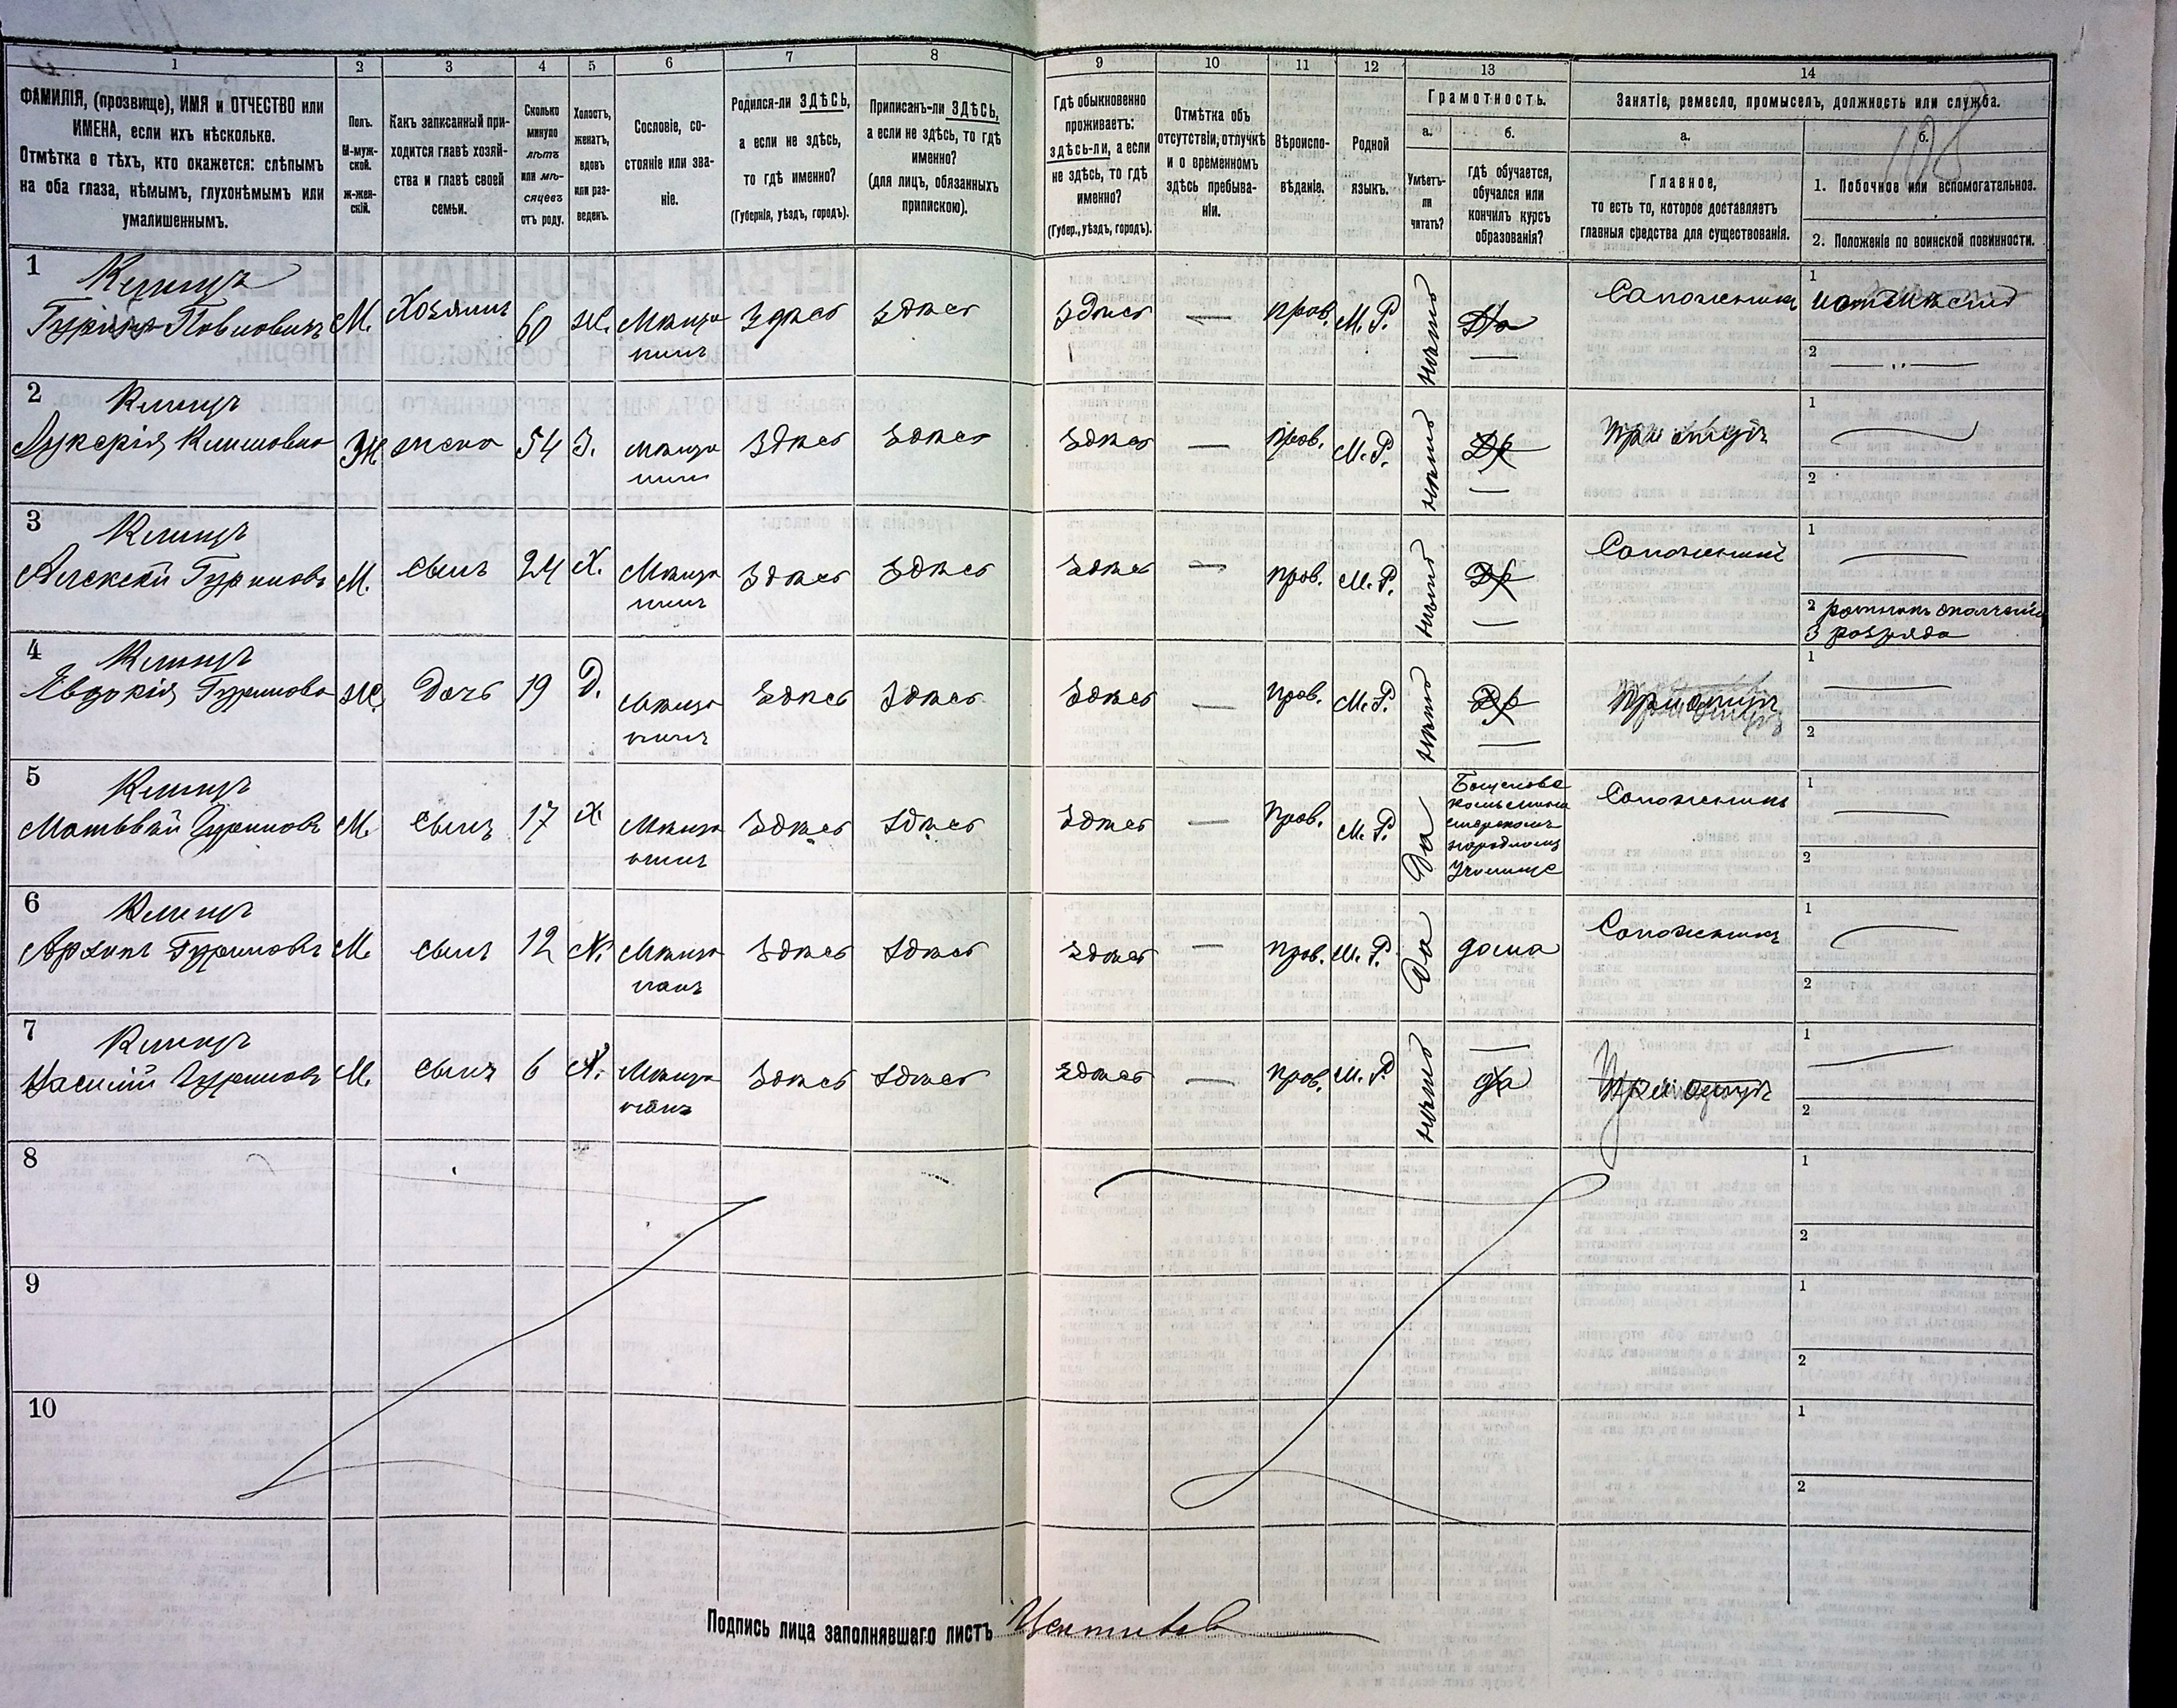 1 2 3 4 5 6 7 8 9 10 11 12 13 14
ФАМИЛІЯ, (прозвище), ИМЯ и ОТЧЕСТВО или
ИМЕНА, если ихъ нѣсколько.
Отмѣтка о тѣхъ, кто окажется: слѣпымъ
на оба глаза, нѣмымъ, глухонѣмымъ или
умалишеннымъ.
Полъ.
М-муж-
ской.
ж-жен-
скій.
Какъ записанный при-
ходится главѣ хозяй-
ства и главѣ своей
семьи.
Сколько
минуло
лѣтъ
или мѣ-
сяцевъ
отъ роду.
Холостъ,
женатъ,
вдовъ
или раз-
веденъ.
Сословіе, со-
стояніе или зва-
ніе.
Родился-ли ЗДѢСЬ,
а если не здѣсь,
то гдѣ именно?
(Губернія, уѣздъ, городъ).
Приписанъ-ли ЗДѢСЬ,
а если не здѣсь, то гдѣ
именно?
(для лицъ, обязанныхъ
припискою).
Гдѣ обыкновенно
проживаетъ:
здѣсь-ли, а если
не здѣсь, то гдѣ
именно?
(Губер., уѣздъ, городъ).
Отмѣтка объ
отсутствіи, отлучкѣ
и о временномъ
здѣсь пребыва-
ніи.
Вѣроиспо-
вѣданіе.
Родной
языкъ.
Грамотность.
а.
Умѣетъ-
ли
читать?
б.
гдѣ обучается,
обучался или
кончилъ курсъ
образованія?
Занятіе, ремесло, промыселъ, должность или служба.
а.
Главное,
то есть то, которое доставляетъ
главныя средства для существованія.
б.
108
1. Побочное или вспомогательное.
2. Положеніе по воинской повинности.
1 Клинцъ
Гурій Павловичъ М. Хозяинъ 60 Ж. Мѣща Здѣсь Здѣсь Здѣсь — прав. М. Р. нѣтъ Да Сапожникъ 1
нинъ — 2
2 Клинцъ
Лукерія Климовна Ж жена 54 З. мѣща Здѣсь Здѣсь Здѣсь — прав. М. Р. нѣтъ при отцѣ 1
— 2
3 Клинцъ
Алексѣй Гуриновъ М. сынъ 24 Х. Мѣща Здѣсь Здѣсь Здѣсь — прав. М. Р. нѣтъ Сапожникъ 1
нинъ — 2 ратникъ ополченія
3 разряда
4 Клинцъ
Евдокія Гуринова Ж. Дочь 19 Д. Мѣща Здѣсь Здѣсь Здѣсь — прав. М. Р. нѣтъ При отцѣ 1
— 2
5 Клинцъ
Матьвѣй Гуриновъ М. сынъ 17 Х Мѣща Здѣсь Здѣсь Здѣсь — прав. М. Р. Да Сапожникъ 1
нинъ народномъ 2
Училище
6 Клинцъ
Архипъ Гуриновъ М. сынъ 12 Х. Мѣща Здѣсь Здѣсь Здѣсь — прав. М. Р. Да дома Сапожникъ 1
нинъ 2
7 Клинцъ
Василій Гуриновъ М. сынъ 6 Х. Мѣща Здѣсь Здѣсь Здѣсь — прав. М. Р. нѣтъ да При отцѣ 1
нинъ 2
8 1
2
9 1
2
10 1
2
Подпись лица заполнявшаго листъ